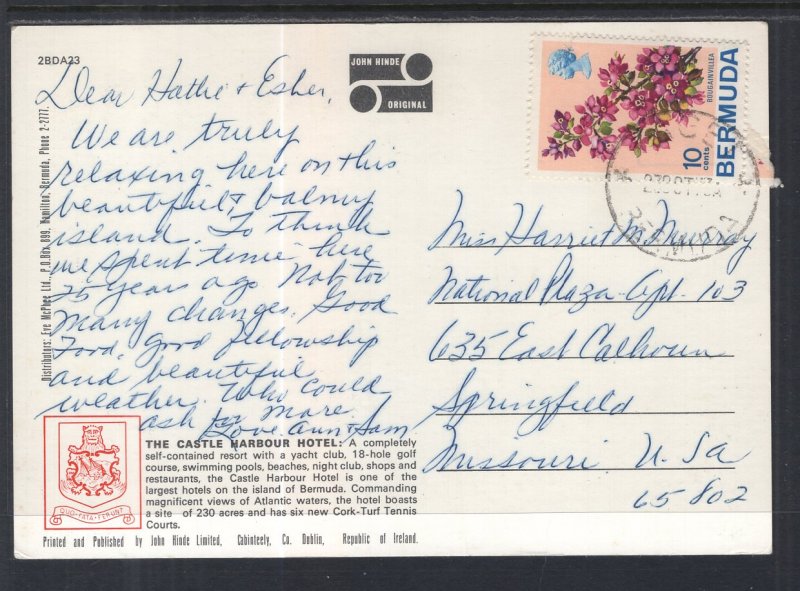 2BDA23
JOHN HINDE
ORIGINAL
BOUGAINVILLEA
BERMUDA
10
cents
Distributors: Eve McPhee Ltd., P.O.Box 899, Hamilton, Bermuda, Phone 2-2777.
Dear Hattie + Esther,
We are truly
relaxing here on this
beautiful & balmy
island. To think
we spent time here
25 years ago. Not too
many changes. Good
Food, good fellowship
and beautiful
weather. Who could
ask for more.
Love. Ann + Sam
Miss Harriet M. Murray
National Plaza-Apt. 103
635 East Calhoun
Springfield
Missouri U. S a
65802
THE CASTLE HARBOUR HOTEL: A completely
self-contained resort with a yacht club, 18-hole golf
course, swimming pools, beaches, night club, shops and
restaurants, the Castle Harbour Hotel is one of the
largest hotels on the island of Bermuda. Commanding
magnificent views of Atlantic waters, the hotel boasts
a site of 230 acres and has six new Cork-Turf Tennis
Courts.
QUO FATA FERUNT
Printed and Published by John Hinde Limited, Cabinteely, Co. Dublin, Republic of Ireland.